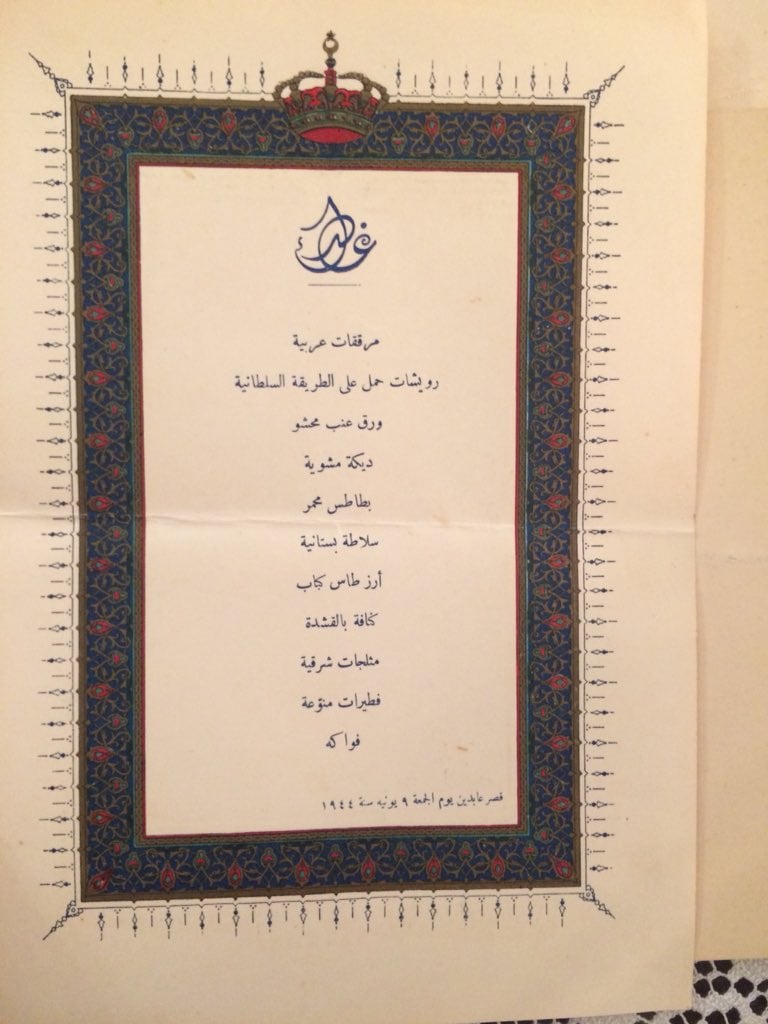 غداء
مرققات عربية
رويشات حمل على الطريقة السلطانية
ورق عنب محشو
ديكة مشوية
بطاطس محمر
سلاطة بستانية
أرز طاس كباب
كنافة بالقشدة
مثلجات شرقية
فطيرات منوّعة
فواكه
قصر عابدين يوم الجمعة ٩ يونيه سنة ١٩٤٤